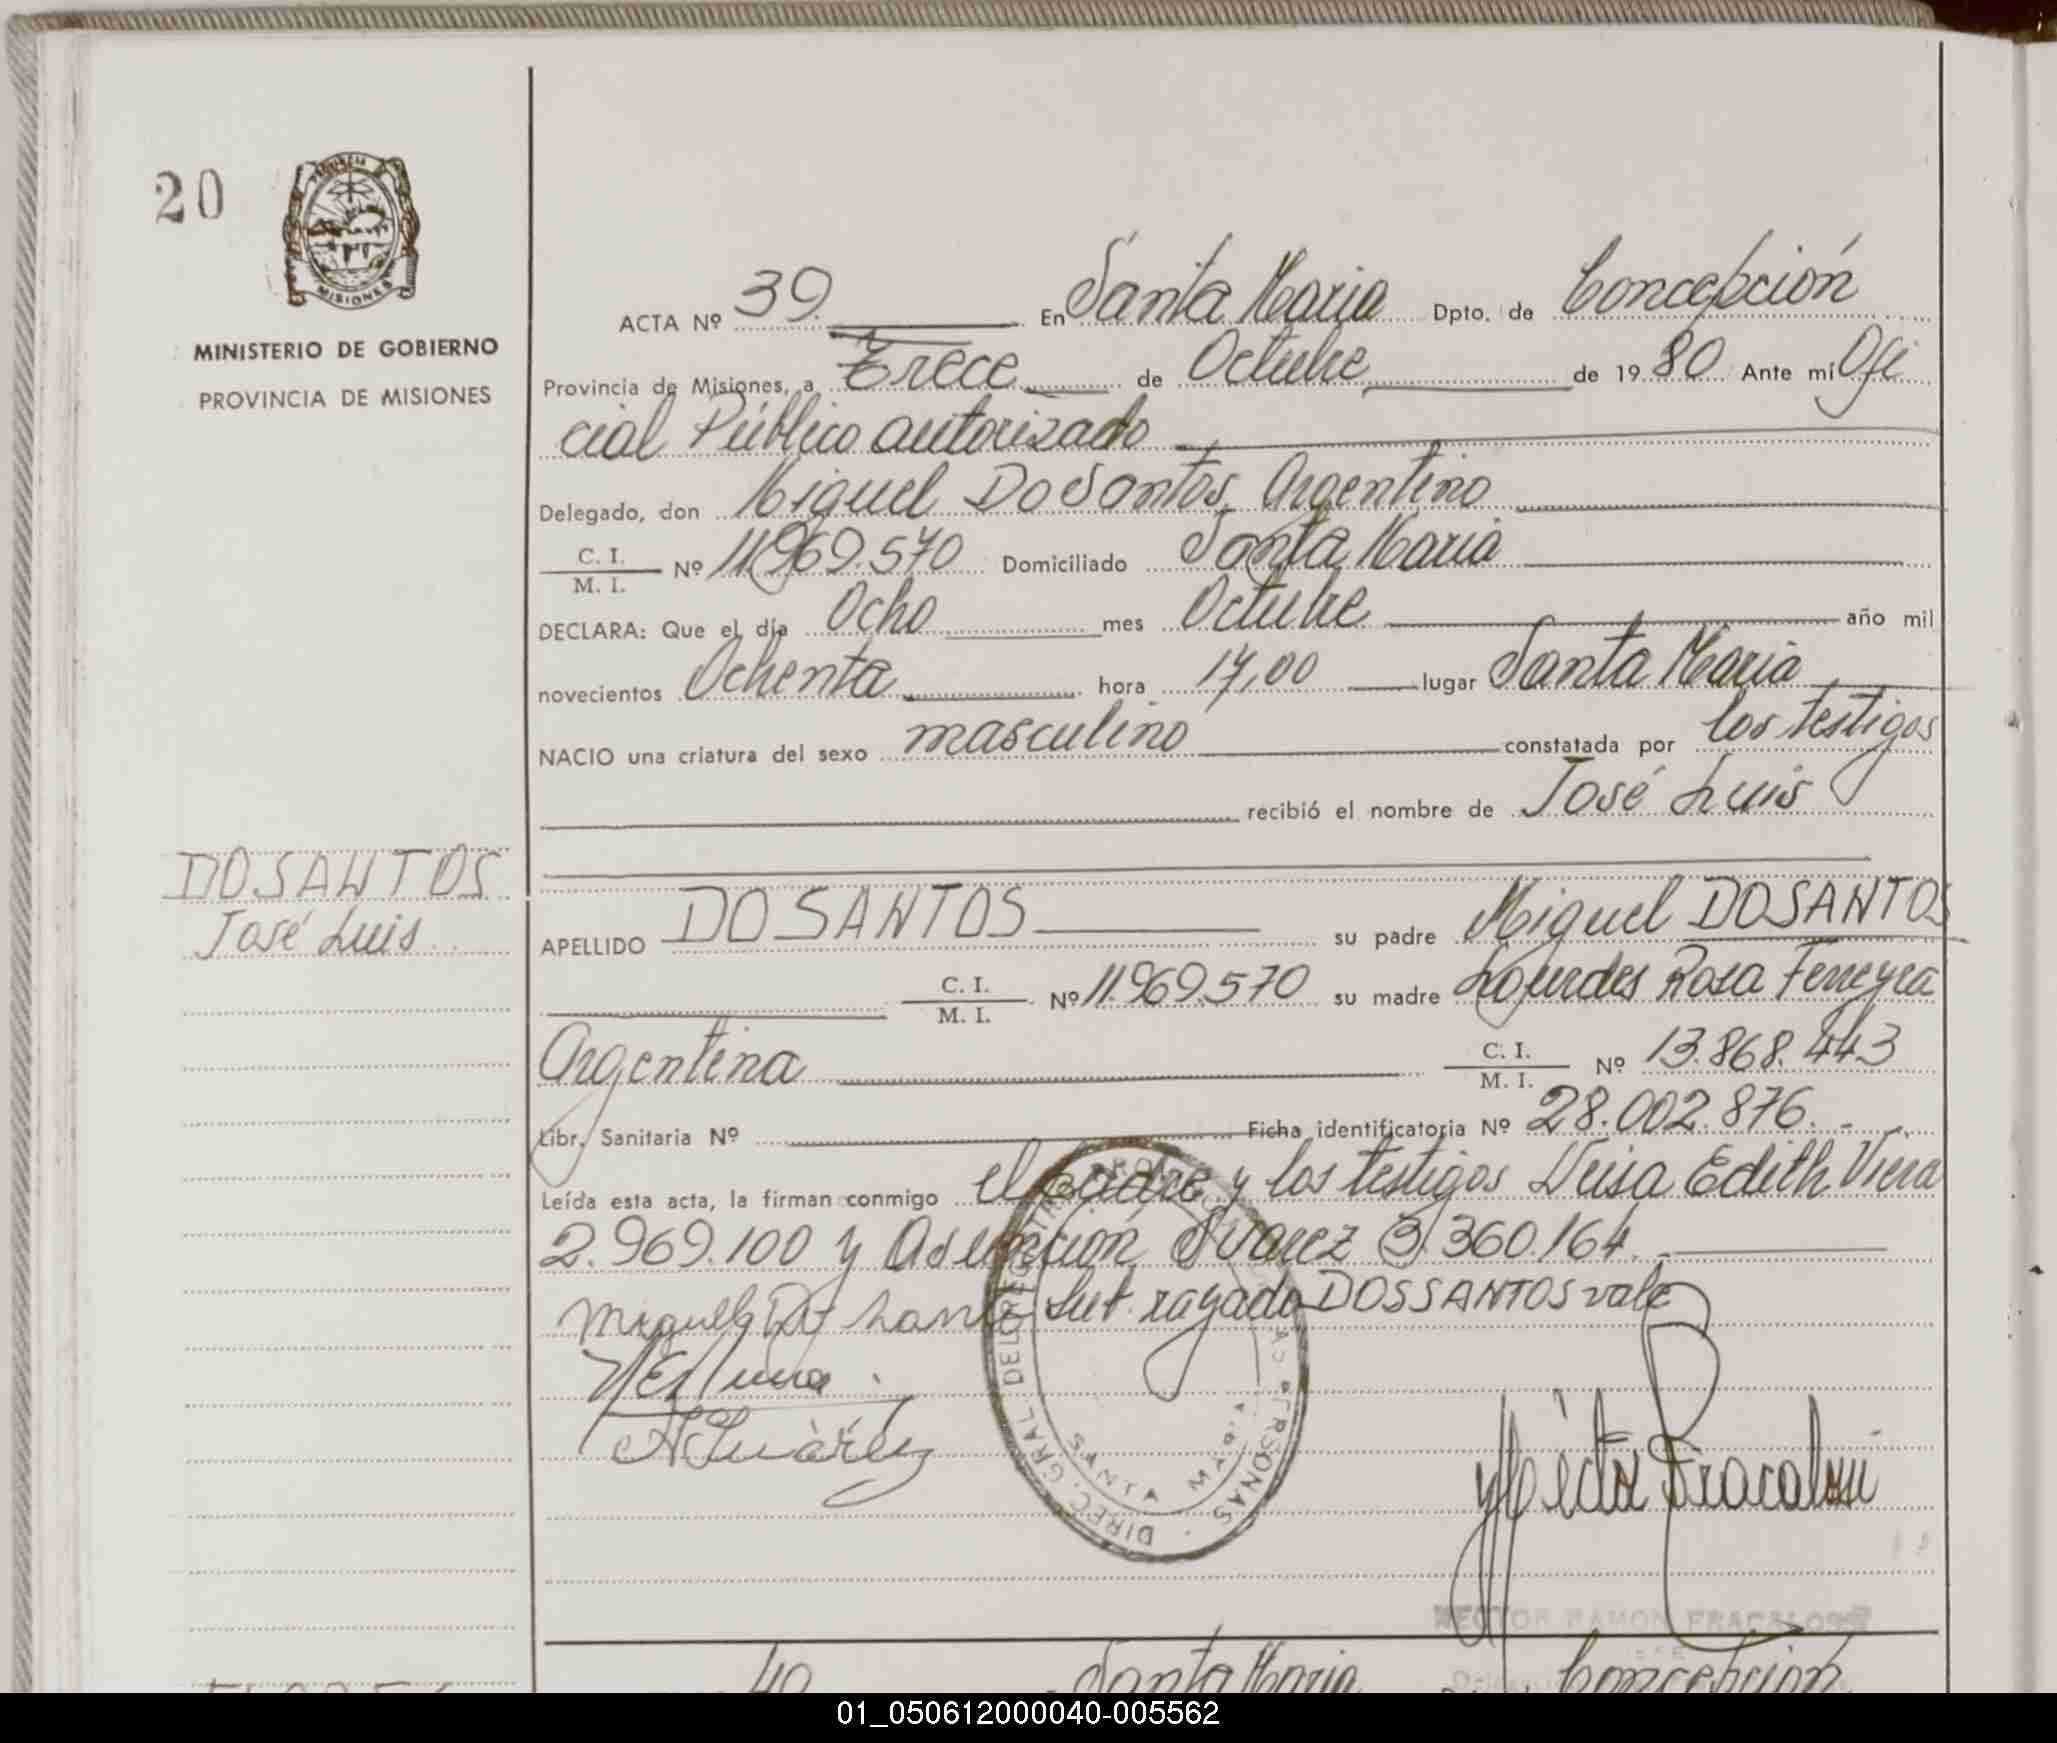 20
PROVINCIA
MISIONES
MINISTERIO DE GOBIERNO
PROVINCIA DE MISIONES
ACTA Nº 39. En Santa Maria Dpto. de Concepción
Provincia de Misiones, a Trece de Octubre de 1980 Ante mí Ofi
cial Público autorizado
Delegado, don Miguel Do Santos, Argentino
C. I.
M. I. Nº 11.969.570 Domiciliado Santa Maria
DECLARA: Que el día Ocho mes Octubre año mil
novecientos Ochenta hora 17,00 lugar Santa Maria
NACIO una criatura del sexo masculino constatada por los testigos
recibió el nombre de José Luis
DOSANTOS
José Luis
APELLIDO DOSANTOS su padre Miguel DOSANTOS
C. I.
M. I. Nº 11.969.570 su madre Lourdes Rosa Ferreyra
Argentina C. I.
M. I. Nº 13.868.443
Libr. Sanitaria Nº Ficha identificatoria Nº 28.002.876.
Leída esta acta, la firman conmigo el padre y los testigos Neisa Edith Viera
2.969.100 y Asunción Suarez 3.360.164.
Sub. rayado DOSSANTOS vale
DIREC. GRAL. DEL REG. PERSONAS
Héctor Fracalossi
HECTOR RAMON FRACALOSSI
40 Santa Maria Concepción
01_050612000040-005562